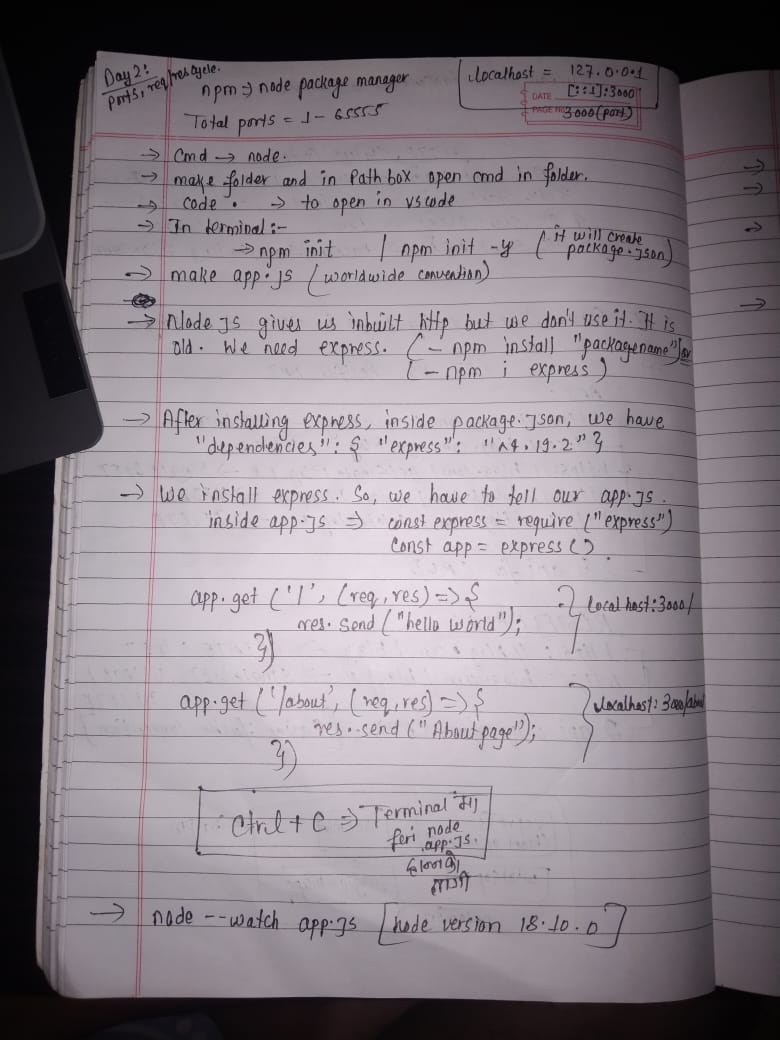 Day 2:
ports, req/res cycle.
npm => node package manager
Total ports = 1 - 65555
localhost = 127.0.0.1
DATE [::1]:3000
PAGE NO 3000 (port)
-> Cmd -> node.
-> make folder and in Path box open cmd in folder.
-> code . -> to open in vscode
-> In terminal :-
-> npm init / npm init -y (it will create package.json)
-> make app.js (worldwide convention)
-> Node JS gives us inbuilt http but we don't use it. It is
old. We need express. (- npm install "packagename" or
- npm i express)
-> After installing express, inside package.json, we have
"dependencies": { "express": "^4.19.2" }
-> We install express. So, we have to tell our app.js.
inside app.js => const express = require ("express")
const app = express ()
app.get ('/', (req, res) => {
res.send ("hello world");
})
localhost:3000/
app.get ('/about', (req, res) => {
res.send ("About page");
})
localhost:3000/about
Ctrl + C => Terminal मा
feri node
app.js.
हान्नको
लागी
-> node --watch app.js [node version 18.10.0]